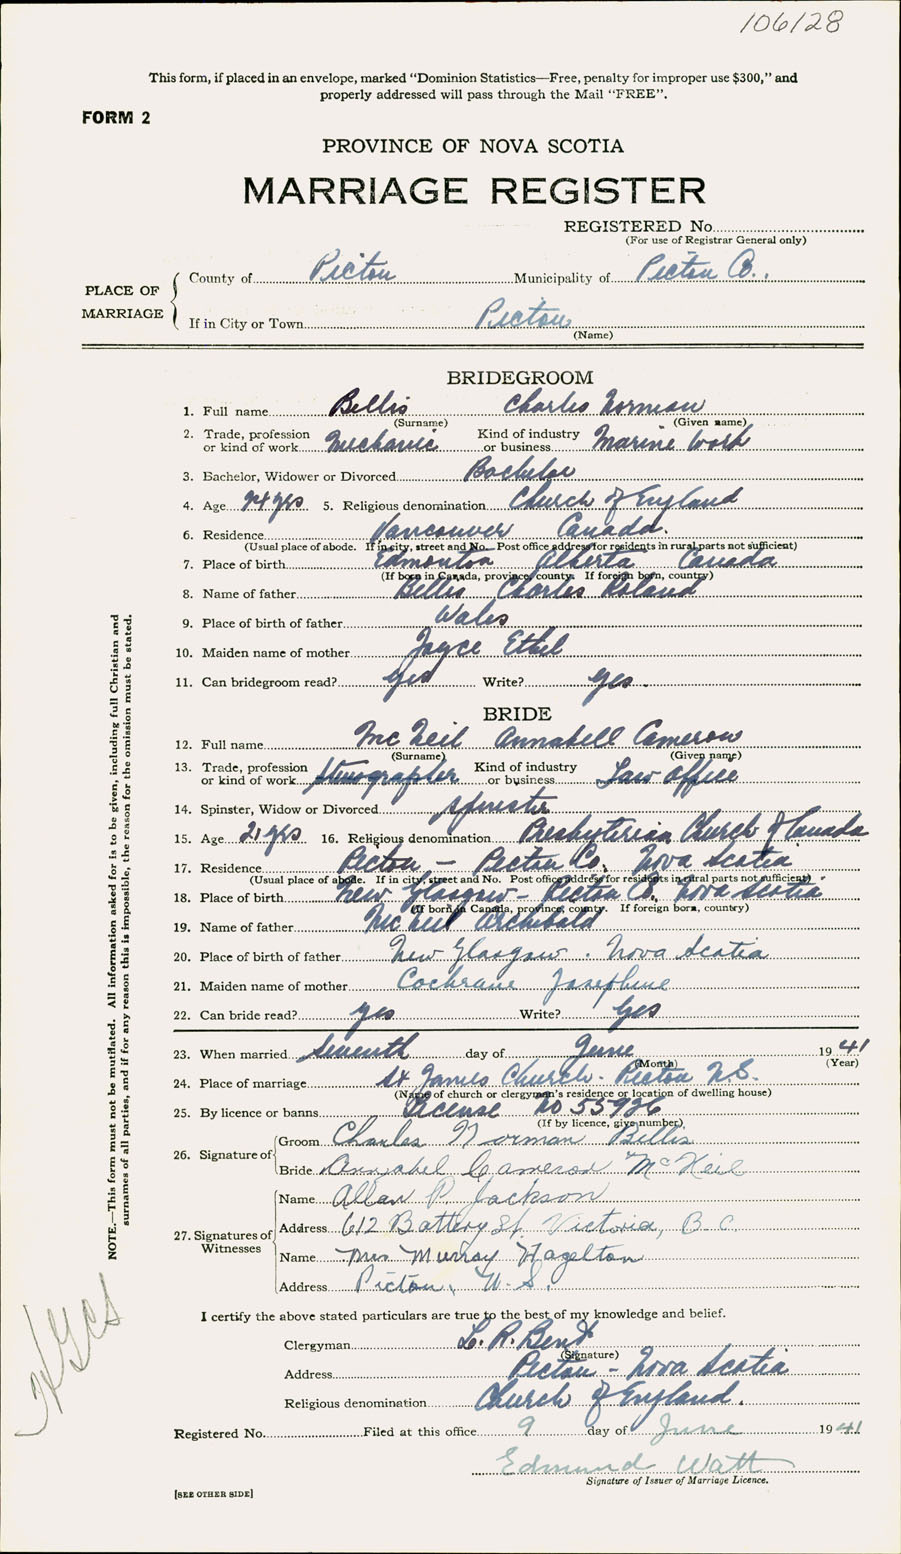 106128
This form, if placed in an envelope, marked "Dominion Statistics—Free, penalty for improper use $300," and
properly addressed will pass through the Mail "FREE".
FORM 2
PROVINCE OF NOVA SCOTIA
MARRIAGE REGISTER
REGISTERED No.
(For use of Registrar General only)
PLACE OF MARRIAGE
County of Pictou Municipality of Pictou Co.
If in City or Town Pictou
(Name)
BRIDEGROOM
1. Full name Bellis Charles Norman
(Surname) (Given name)
2. Trade, profession or kind of work Mechanic Kind of industry or business Marine Work
3. Bachelor, Widower or Divorced Bachelor
4. Age 24 yrs 5. Religious denomination Church of England
6. Residence Vancouver Canada.
(Usual place of abode. If in city, street and No. Post office address for residents in rural parts not sufficient)
7. Place of birth Edmonton Alberta Canada
(If born in Canada, province, county. If foreign born, country)
8. Name of father Bellis Charles Roland
9. Place of birth of father Wales
10. Maiden name of mother Joyce Ethel
11. Can bridegroom read? yes Write? yes.
BRIDE
12. Full name McNeil Annabell Cameron
(Surname) (Given name)
13. Trade, profession or kind of work Stenographer Kind of industry or business Law Office
14. Spinster, Widow or Divorced Spinster
15. Age 21 yrs 16. Religious denomination Presbyterian Church of Canada
17. Residence Pictou — Pictou Co. Nova Scotia
(Usual place of abode. If in city, street and No. Post office address for residents in rural parts not sufficient)
18. Place of birth New Glasgow - Pictou Co. Nova Scotia
(If born in Canada, province, county. If foreign born, country)
19. Name of father McNeil Archibald
20. Place of birth of father New Glasgow. Nova Scotia
21. Maiden name of mother Cochrane Josephine
22. Can bride read? yes Write? yes
23. When married seventh day of June 1941
(Month) (Year)
24. Place of marriage St James Church - Pictou N.S.
(Name of church or clergyman's residence or location of dwelling house)
25. By licence or banns License No 55926
(If by licence, give number)
26. Signature of
Groom Charles Norman Bellis
Bride Annabel Cameron McNeil
27. Signatures of Witnesses
Name Allan P. Jackson
Address 612 Battery St. Victoria, B C
Name Mrs Murray Hazelton
Address Pictou, N.S.
I certify the above stated particulars are true to the best of my knowledge and belief.
Clergyman L. R. Bent
(Signature)
Address Pictou - Nova Scotia
Religious denomination Church of England.
Registered No. Filed at this office 9 day of June 1941
Edmund Watt
Signature of Issuer of Marriage Licence.
[SEE OTHER SIDE]
NOTE.—This form must not be mutilated. All information asked for is to be given, including full Christian and
surnames of all parties, and if for any reason this is impossible, the reason for the omission must be stated.